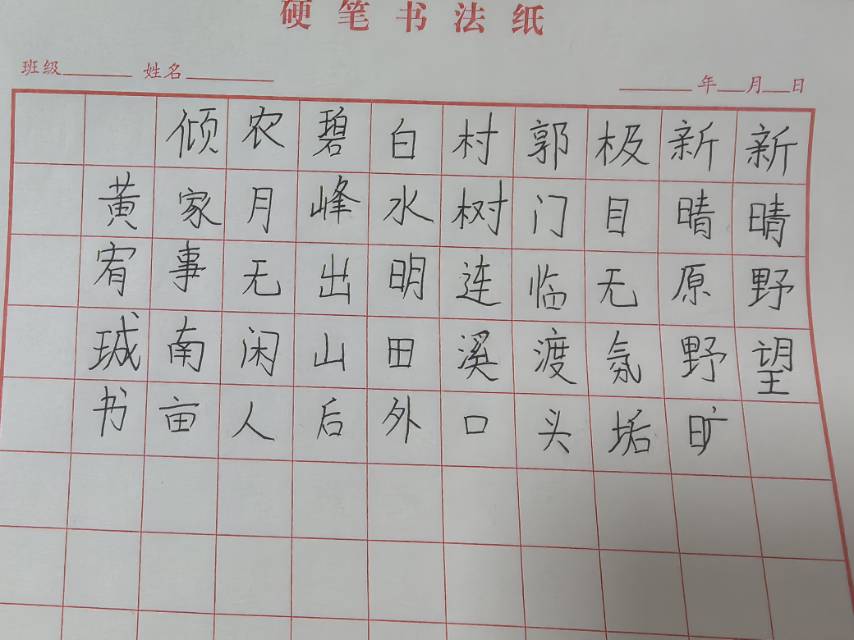 硬笔书法纸
班级 姓名
年 月 日
新晴野望
新晴原野旷
极目无氛垢
郭门临渡头
村树连溪口
白水明田外
碧峰出山后
农月无闲人
倾家事南亩
黄宥珹书